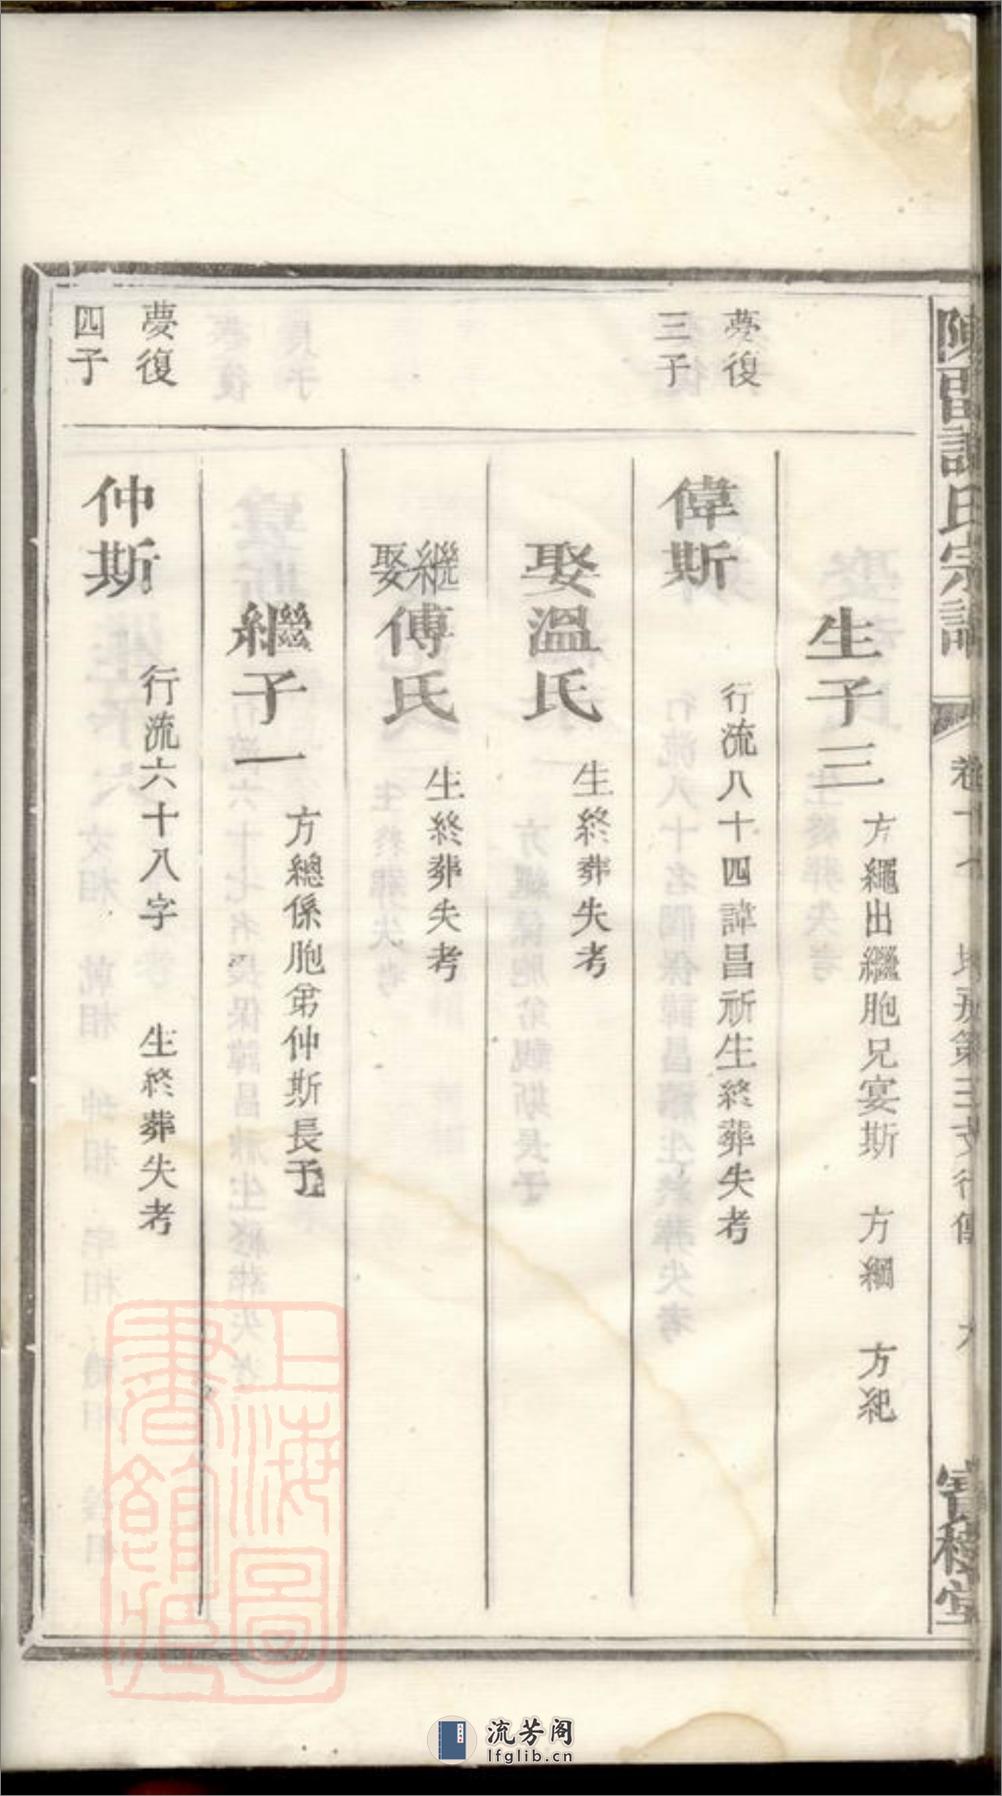 氏宗譜
生子三 方繩出繼胞兄宴斯 方綱 方紀
夢復
三子
偉斯 行流八十四諱昌祈生終葬失考
娶溫氏 生終葬失考
繼娶傅氏 生終葬失考
繼子一 方總係胞弟仲斯長子
夢復
四子
仲斯 行流六十八字 生終葬失考
上海圖
書館藏
流芳阁
lfglib.cn